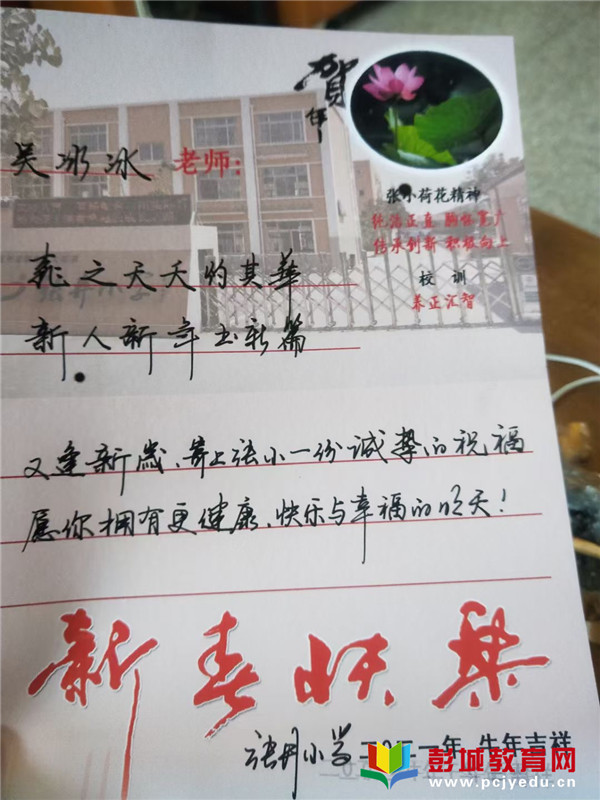 贺年
吴冰冰 老师:
张小荷花精神
纯洁正直 胸怀宽广
传承创新 积极向上
校 训
养正汇智
桃之夭夭灼其華
新人新年出新篇
又逢新岁、寄上张小一份诚挚的祝福
愿你拥有更健康、快乐与幸福的明天!
新春快樂
张井小学 二〇二一年 牛年吉祥
彭城教育网
www.pcjyedu.cn